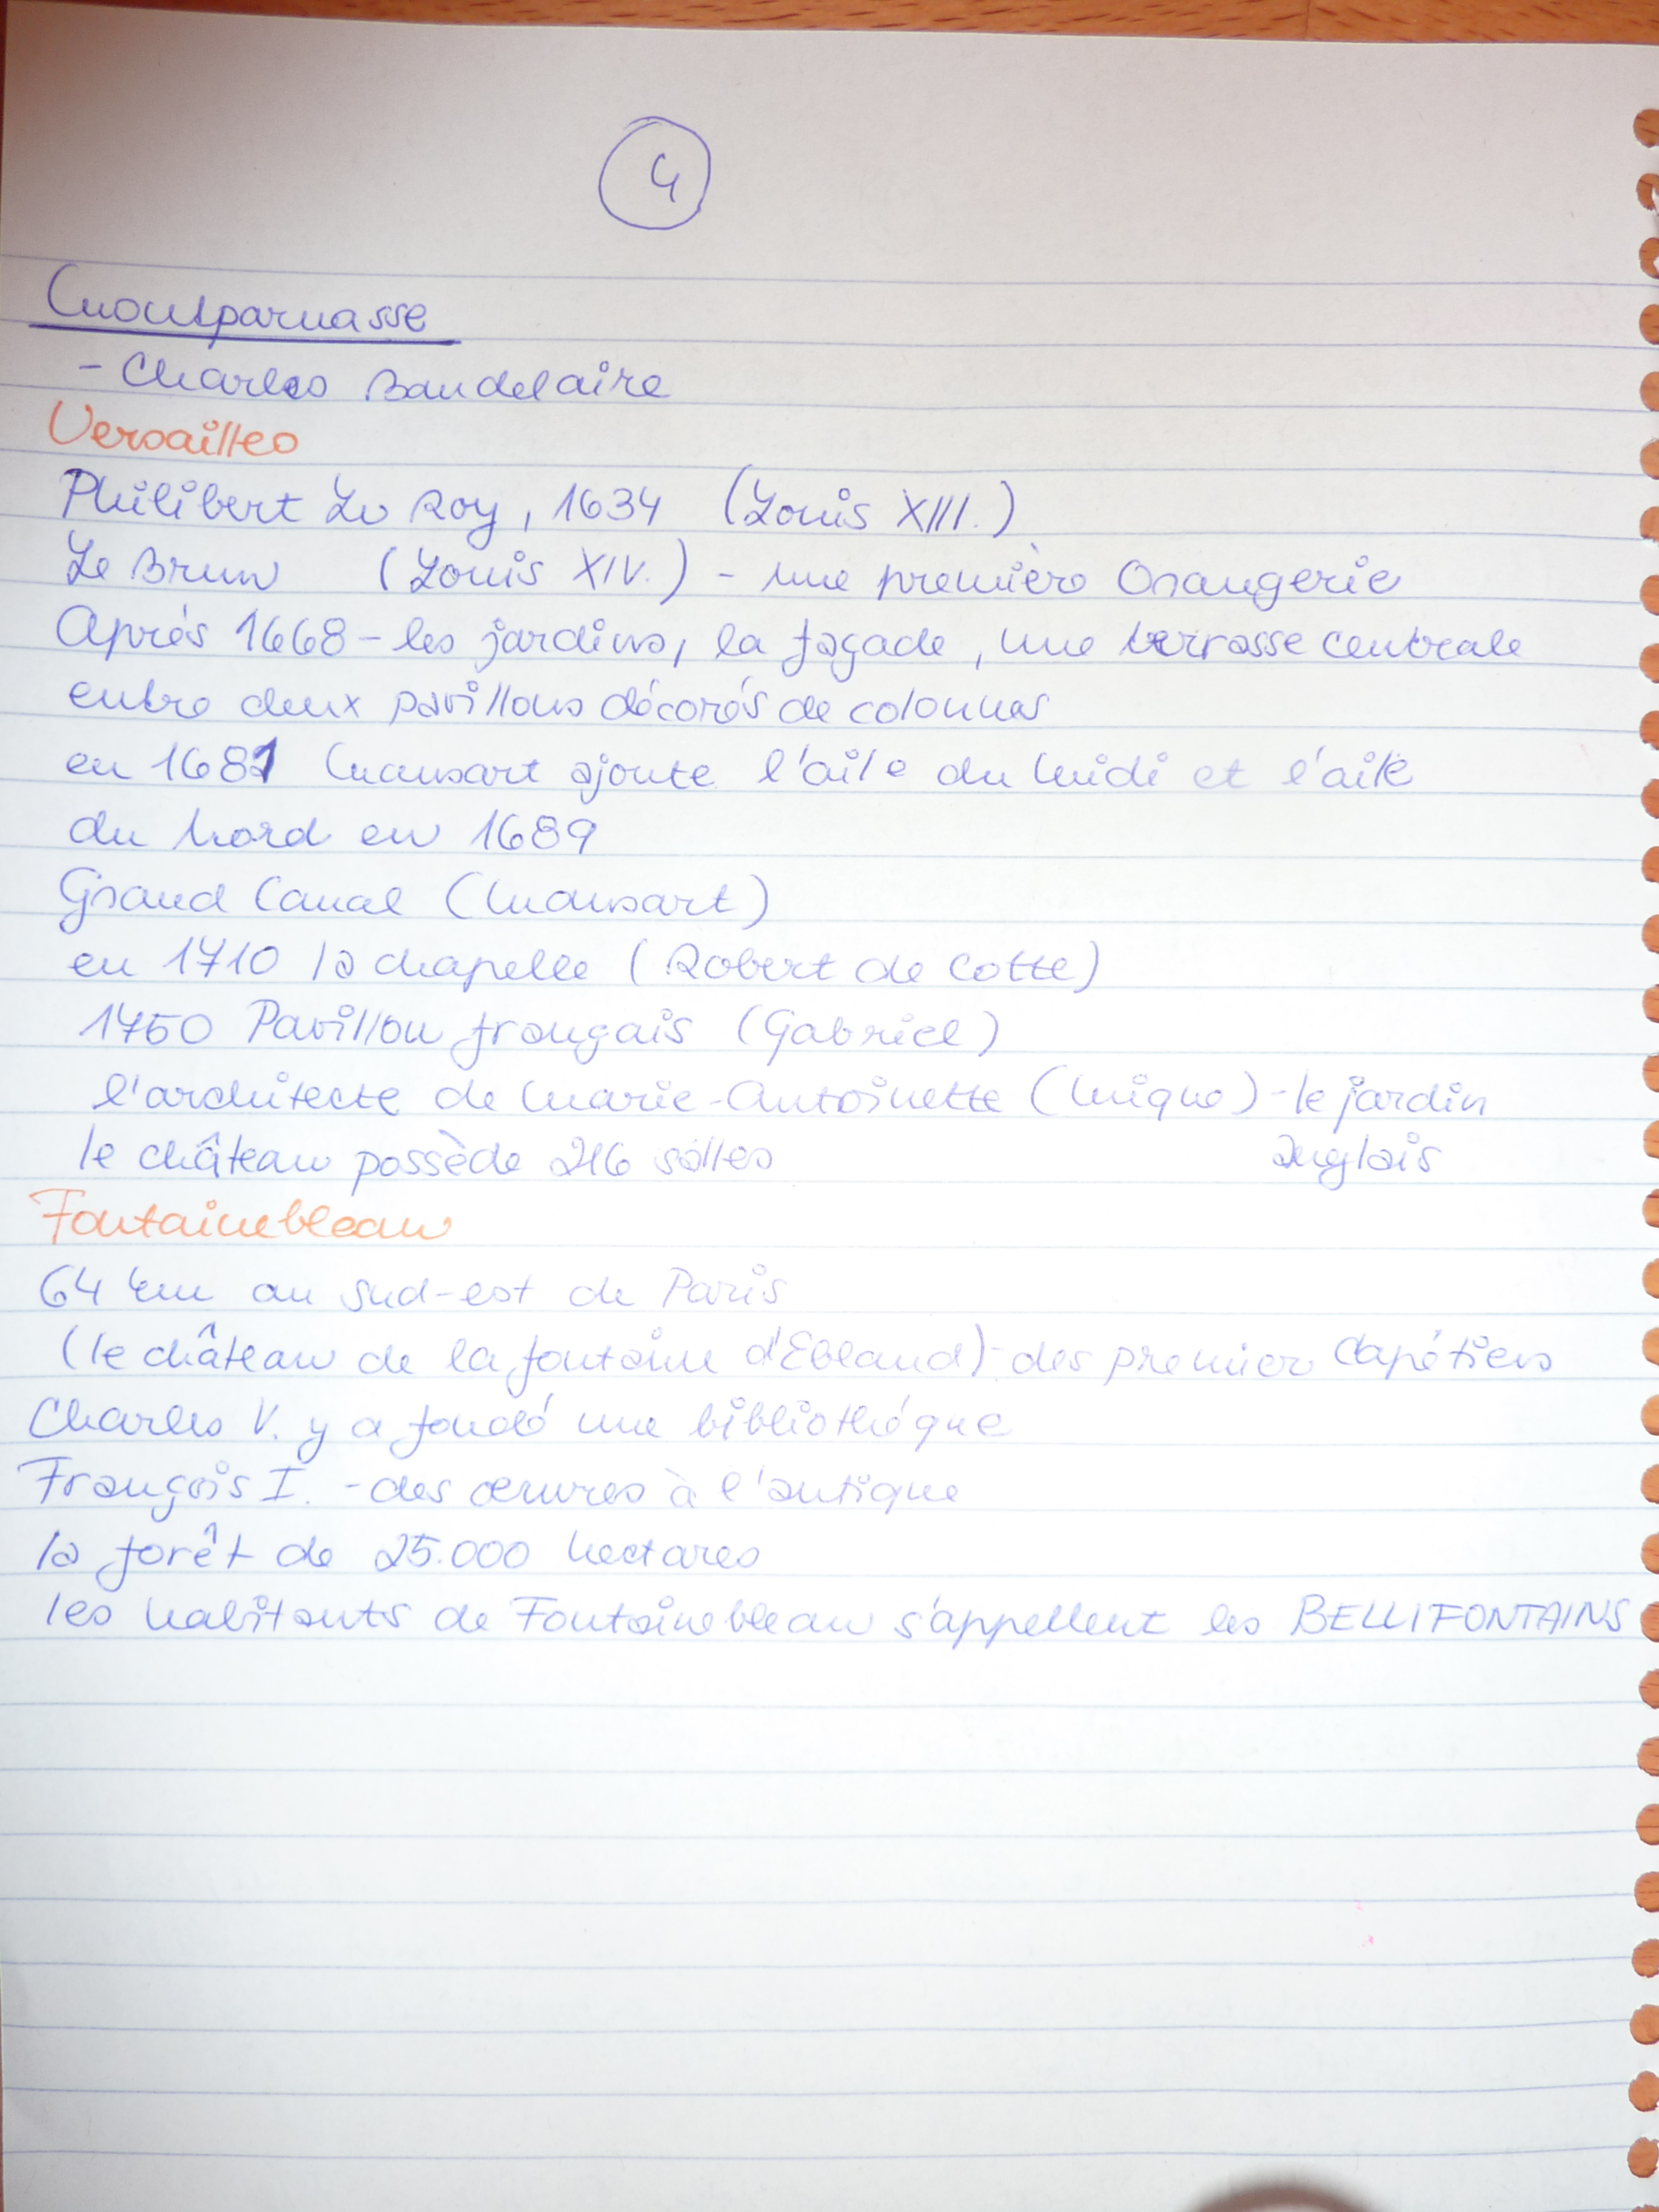 4
Montparnasse
- Charles Baudelaire
Versailles
Philibert Le Roy, 1634 (Louis XIII.)
Le Brun (Louis XIV.) - une première Orangerie
Après 1668 - les jardins, la façade, une terrasse centrale
entre deux pavillons décorés de colonnes
en 1681 Mansart ajoute l'aile du Midi et l'aile
du Nord en 1689
Grand Canal (Mansart)
en 1710 la chapelle (Robert de Cotte)
1750 Pavillon français (Gabriel)
l'architecte de Marie-Antoinette (Mique) - le jardin
anglais
le château possède 216 salles
Fontainebleau
64 km au sud-est de Paris
(le château de la fontaine d'Ebleaud) - des premiers Capétiens
Charles V. y a fondé une bibliothéque
François I. - des œuvres à l'antique
la forêt de 25.000 hectares
les habitants de Fontainebleau s'appellent les BELLIFONTAINS